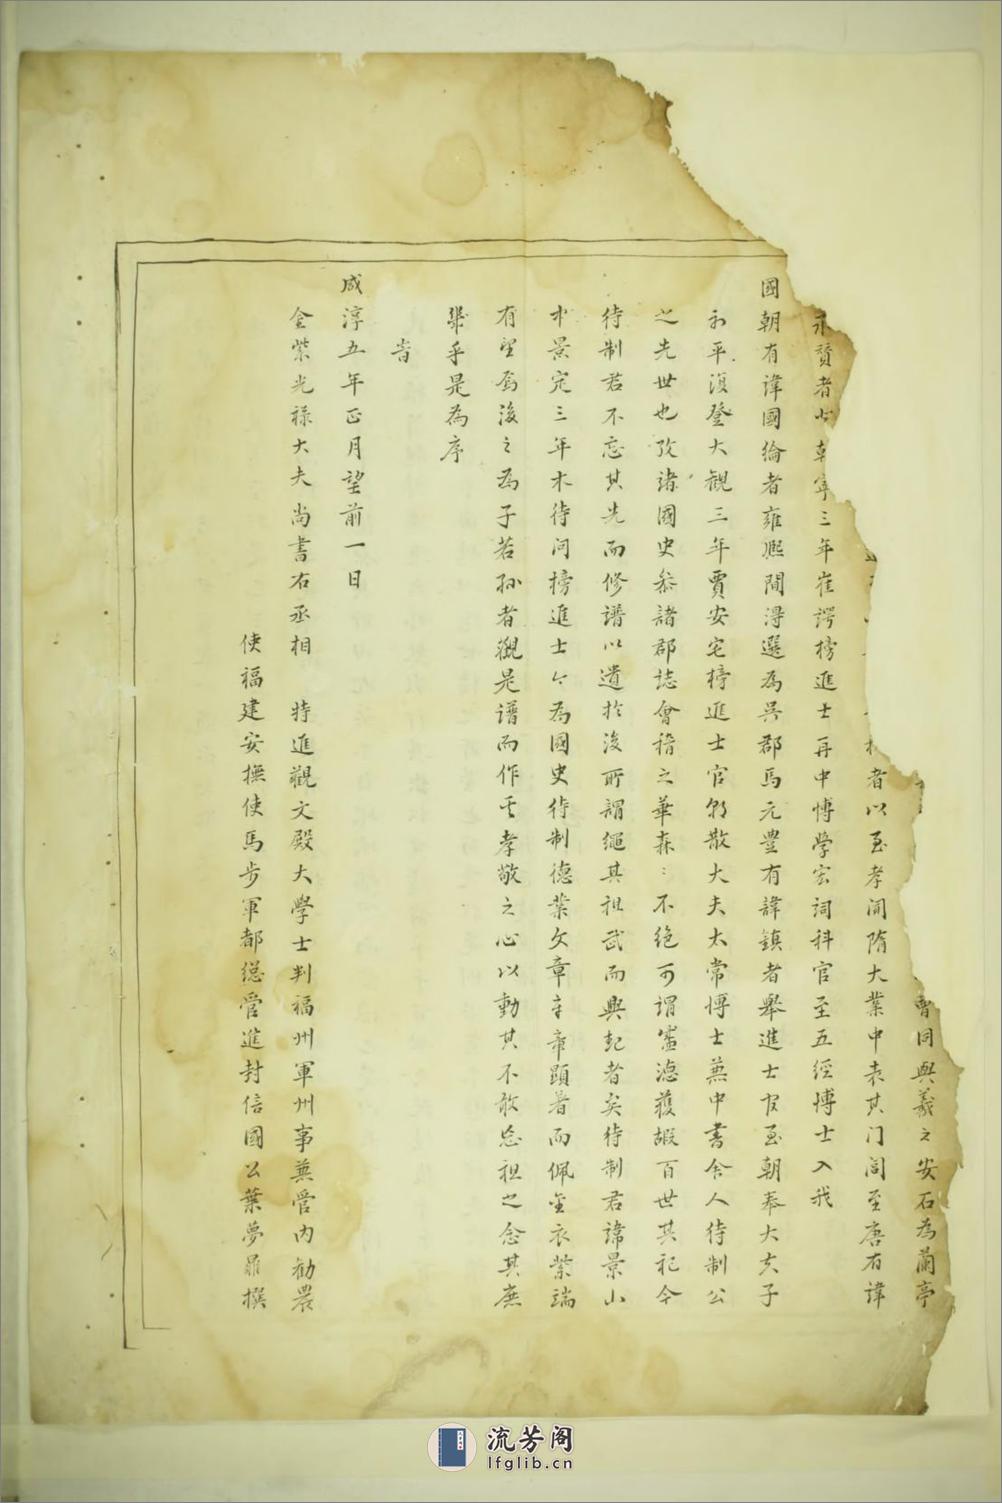 曹同興義之安石為蘭亭
者以至孝聞隋大業中表其门閭至唐有諱
永贇者乾寧三年崔諤榜進士再中博學宏词科官至五經博士入我
國朝有諱國綸者雍熙間淂選為吳郡馬元豊有諱鎮者舉進士官至朝奉大夫子
和平復登大觀三年賈安宅榜進士官朝散大夫太常博士蒹中書舍人待制公
之先世也攷諸國史叅諸郡誌會稽之華森〻不绝可謂蓄徳蔭嘏百世其祀今
待制君不忘其先而修谱以遺扵後所謂繩其祖武而興起者矣待制君諱景山
中景定三年木待问榜進士今為國史待制德業文章章章顕著而佩金衣紫端
有望焉後之為子若孙者觀是谱而作其孝敬之心以動其不敢忘祖之念其庶
幾乎是為序
旹
咸淳五年正月望前一日
金紫光禄大夫尚書右丞相 特進觀文殿大學士判福州軍州事蒹管内勧農
使福建安撫使馬步軍都總管進封信國公葉夢鼎撰
流芳阁
lfglib.cn